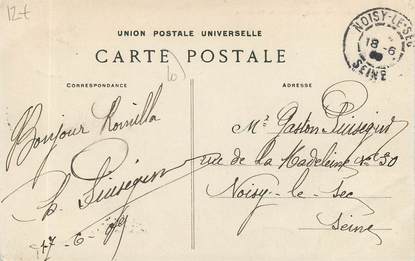 12t
UNION POSTALE UNIVERSELLE
CARTE POSTALE
CORRESPONDANCE
ADRESSE
NOISY-LE-SEC
18 -6
SEINE
Bonjour
17-6-
Mr Gaston Puiségur
rue de la Madeleine No 30
Noisy-le-Sec
Seine